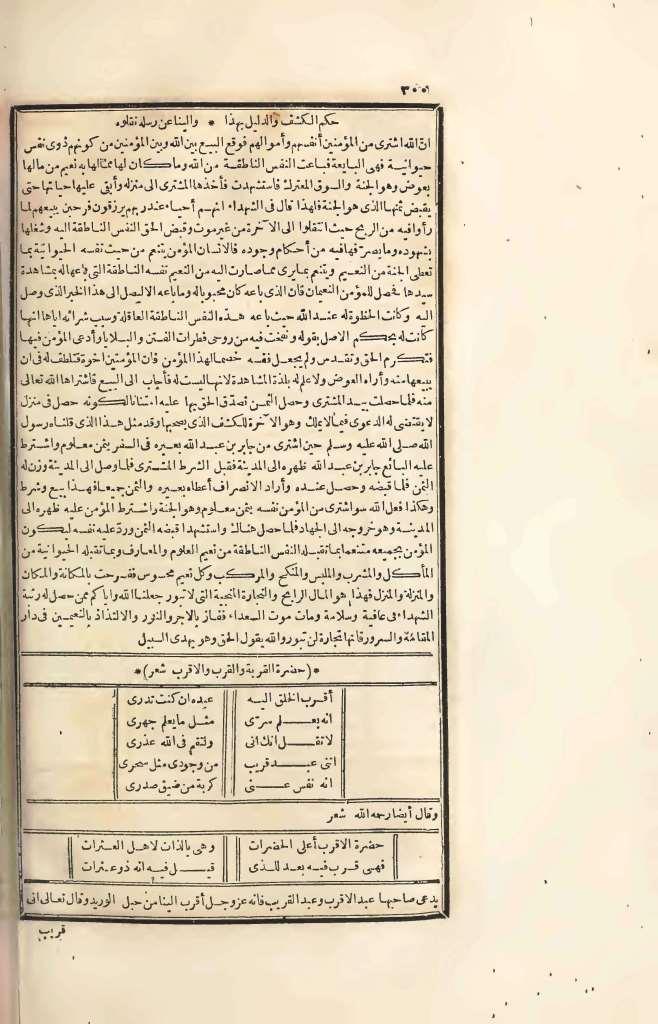 ٣٠٥
حكم الكشف والدليل بهذا * والينا عن رسله نقلوه
ان الله اشترى من المؤمنين أنفسهم وأموالهم فوقع البيع بين الله وبين المؤمنين من كونهم ذوى نفس
حيوانية فهى البايعة فباعت النفس الناطقة من الله وما كان لها مما لها به نعيم من مالها
بعوض وهو الجنة والسوق المعترك فاستشهدت فأخذها المشترى الى منزله وأبقى عليها حياتها حتى
يقبض ثمنها الذى هو الجنة فلهذا قال فى الشهداء انهم أحياء عند ربهم يرزقون فرحين ببيعهم لما
رأوا فيه من الربح حيث انتقلوا الى الآخرة من غير موت وقبض الحق النفس الناطقة اليه وشغلها
بشهوده وما يصرّفها فيه من أحكام وجوده فالانسان المؤمن يتنعم من حيث نفسه الحيوانية بما
تعطى الجنة من النعيم ويتنعم بما يرى مما صارت اليه من النعيم نفسه الناطقة التى باعها له بمشاهدة
سيدها فحصل للمؤمن النعيمان فان الذى باعه كان محبوبا له وما باعه الا ليصل الى هذا الخير الذى وصل
اليه وكانت الحظوة له عند الله حيث باعه هذه النفس الناطقة العاقلة وسبب شرائه اياها انها
كانت له بحكم الاصل بقوله ونفخت فيه من روحى فطرات الفتن والبلايا وادعى المؤمن فيها
فتكرم الحق وتقدس ولم يجعل نفسه خصما لهذا المؤمن فان المؤمنين اخوة فتلطف له فى ان
يبيعها منه وأراه العوض ولا علم له بلذة المشاهدة لانها ليست له فأجاب الى البيع فاشتراها الله تعالى
منه فلما حصلت بيد المشترى وحصل الثمن تصدّق الحق بها عليه امتنانا لكونه حصل فى منزل
لا يقتضى له الدعوى فيما لا يملك وهو الآخرة للكشف الذى يصحبها وقد مثل هذا الذى قلناه رسول
الله صلى الله عليه وسلم حين اشترى من جابر بن عبد الله بعيره فى السفر بثمن معلوم واشترط
عليه البائع جابر بن عبد الله ظهره الى المدينة فقبل الشرط المشترى فلما وصل الى المدينة وزن له
الثمن فلما قبضه وحصل عنده وأراد الانصراف أعطاه بعيره والثمن جميعا فهذا بيع وشرط
وهكذا فعل الله سواء اشترى من المؤمن نفسه بثمن معلوم وهو الجنة واشترط المؤمن عليه ظهره الى
المدينة وهو خروجه الى الجهاد فلما حصل هنالك واستشهد قبضه الثمن وردّ عليه نفسه ليكون
المؤمن بجميعه متنعما بما تقبله النفس الناطقة من نعيم العلوم والمعارف وبما تقبله الحيوانية من
المأكل والمشرب والملبس والمنكح والمركب وكل نعيم محسوس ففرحت بالمكانة والمكان
والمنزلة والمنزل فهذا هو المال الرابح والتجارة المنجية التى لا تبور جعلنا الله واياكم ممن حصل له رتبة
الشهداء فى عافية وسلامة ومات موت السعداء ففاز بالاجر والنور والالتذاذ بالنعيمين فى دار
المقامة والسرور فانها تجارة لن تبور والله يقول الحق وهو يهدى السبيل
*(حضرة القربة والقرب والاقرب شعر)*
أقرب الخلق اليه عبده ان كنت تدرى
انه يعلم سرّى مثل ما يعلم جهرى
لا تقل انك انى ولتقم فى الله عذرى
اننى عبد قريب من وجودى مثل سحرى
انه نفس عنى كربة من ضيق صدرى
وقال أيضا رحمه الله شعر
حضرة الاقرب أعلى الحضرات وهى بالذات لاهل العثرات
فهى قرب فيه بعد للذى قيل فيه انه ذو عثرات
يدعى صاحبها عبد الاقرب وعبد القريب فانه عز وجل أقرب الينا من حبل الوريد وقال تعالى انى
قريب